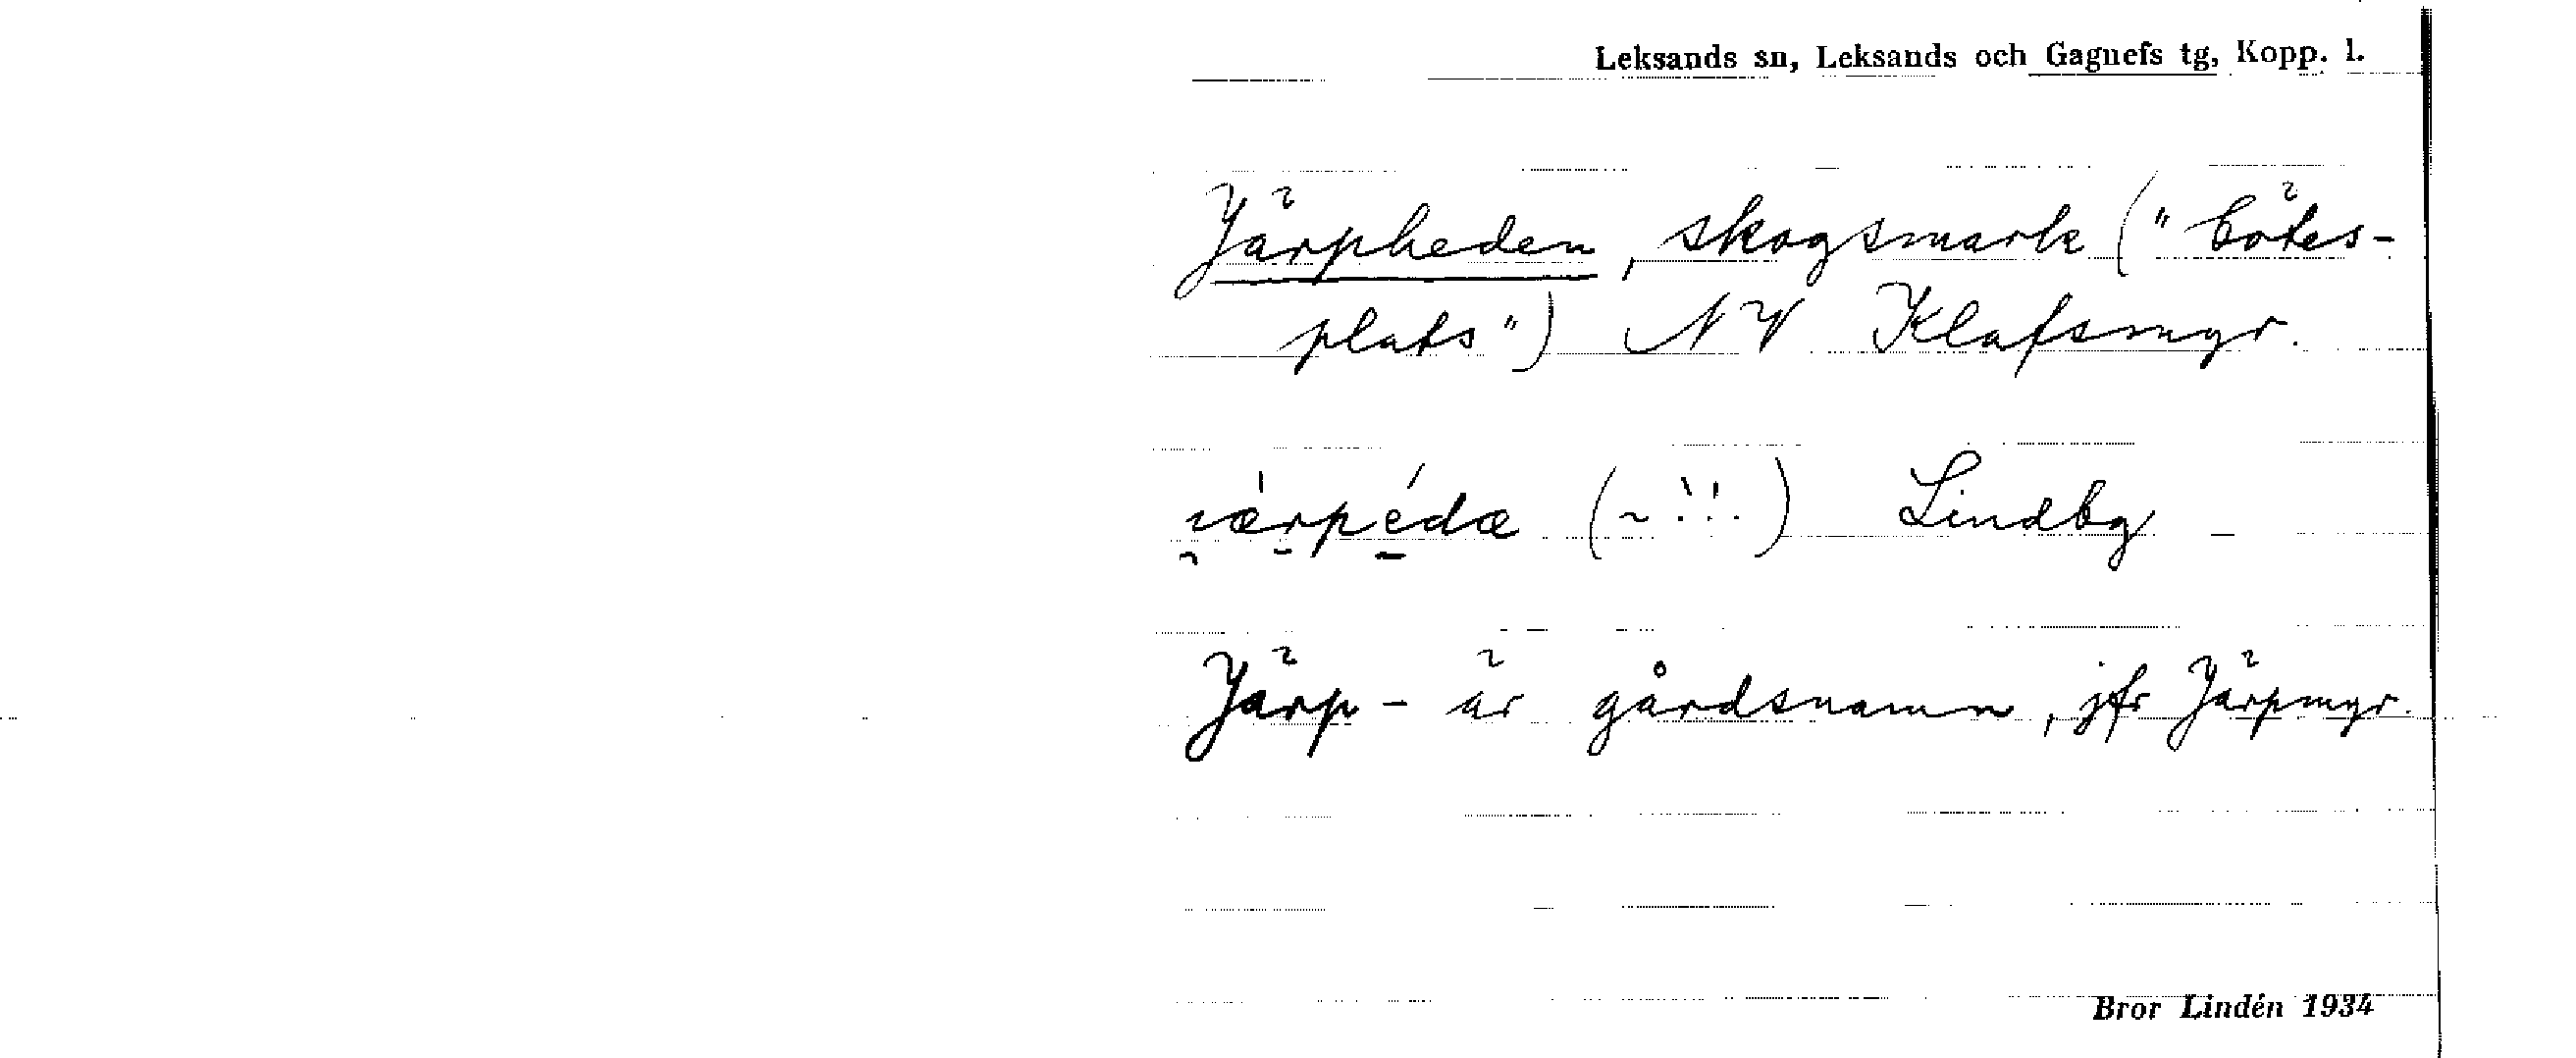 Leksands sn, Leksands och Gagnefs tg, Kopp. l.
Järpheden, skogsmark ("bötes-
plats") NV Klafsmyr.
Lindbg
Järp- är gårdsnamn, jfr Järpmyr.
Bror Lindén 1934